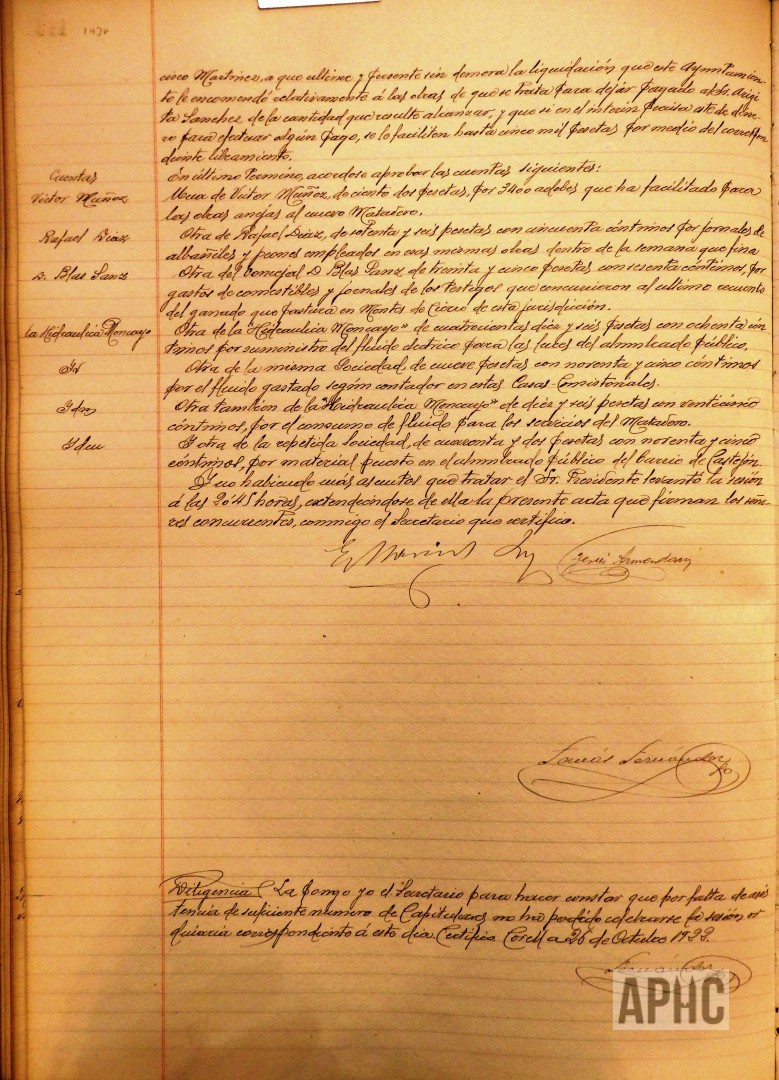 1470
cisco Martinez, a que ultime y presente sin demora la liquidación que este Ayuntamien-
to le encomendó relativamente á las obras de que se trata para dejar pagado al Sr.
ta Sanchez, de la cantidad que resulte alcanzar, y que si en el interin precisa este de dine-
ro para efectuar algún pago, se le faciliten hasta cinco mil pesetas por medio del correspon-
diente libramiento.
Cuentas
En último término, acordose aprobar las cuentas siguientes:
Victor Muñoz
Una de Victor Muñoz, de ciento dos pesetas, por 3400 adobes que ha facilitado para
las obras anejas al nuevo Matadero.
Rafael Diaz
Otra de Rafael Diaz, de setenta y seis pesetas con cincuenta céntimos por jornales de
albañiles y peones empleados en esas mismas obras dentro de la semana que fina
D. Blas Sanz
Otra del concejal D. Blas Sanz, de treinta y cinco pesetas con sesenta céntimos, por
gastos de comestibles y jornales de los testigos que concurrieron al ultimo recuento
del ganado que pastura en Montes de Cierzo de esta jurisdicción.
La Hidraulica Moncayo
Otra de la "Hidraulica Moncayo" de cuatrocientas diez y seis pesetas con ochenta cén-
timos por suministro del fluido electrico para las luces del alumbrado público.
Id
Otra de la misma Sociedad, de nueve pesetas con noventa y cinco céntimos
por el fluido gastado según contador en estas Casas-Consistoriales.
Idm
Otra también de la "Hidraulica Moncayo" de diez y seis pesetas con venticinco
céntimos, por el consumo de fluido para los servicios del Matadero.
Idem
Y otra de la repetida sociedad, de cuarenta y dos pesetas con noventa y cinco
céntimos, por material puesto en el alumbrado público del barrio de Castejón.
Y no habiendo más asuntos que tratar el Sr. Presidente levantó la sesión
á las 20'45 horas, extendiéndose de ella la presente acta que firman los seño-
res concurrentes, conmigo el Secretario que certifico.
Jesús Armendariz
Tomás Fernández
Diligencia La pongo yo el Secretario para hacer constar que por falta de asis-
tencia de suficiente numero de Capitulares no ha podido celebrarse la sesión or-
dinaria correspondiente á este dia. Certifico. Corella 26 de Octubre 1922.
Fernández
APHC